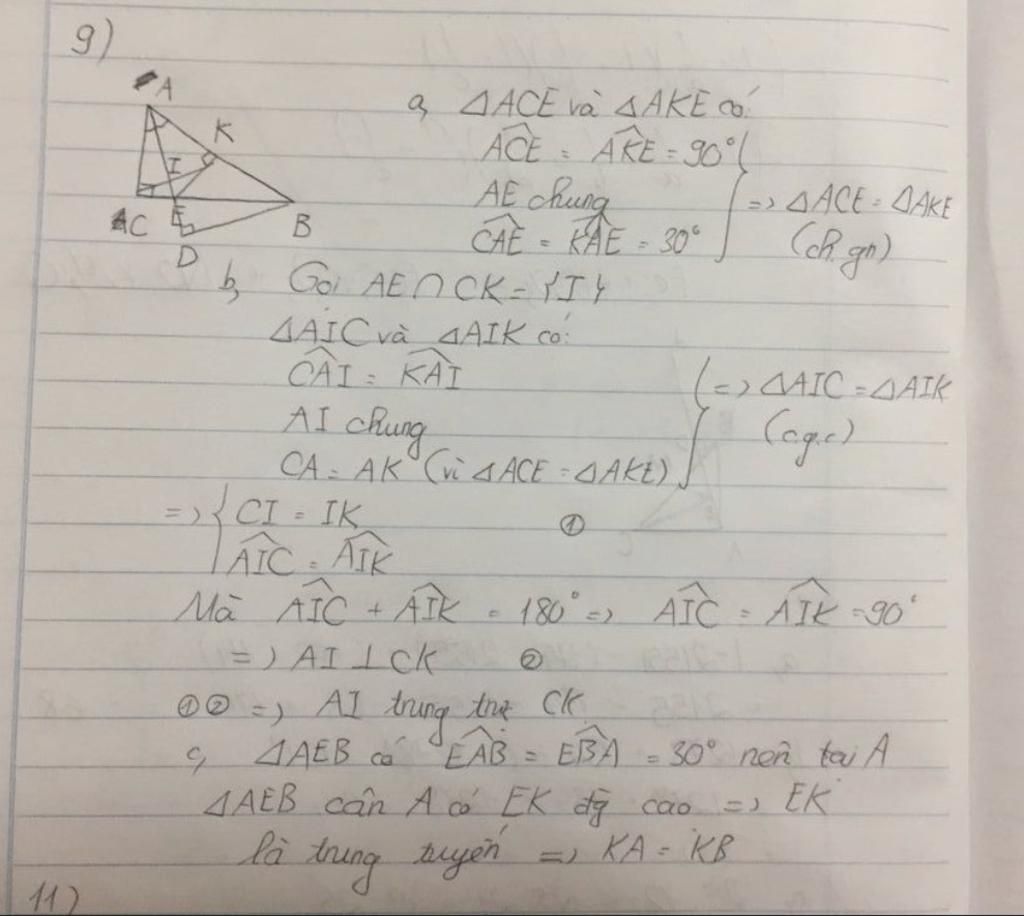 9)
A
K
I
C
E
B
D
a, ΔACE và ΔAKE có:
ACE^ = AKE^ = 90°
AE chung
=> ΔACE = ΔAKE
CAE^ = KAE^ = 30°
(ch.gn)
b, Gọi AE ∩ CK = {I}
ΔAIC và ΔAIK có:
CAI^ = KAI^
=> ΔAIC = ΔAIK
AI chung
(c.g.c)
CA = AK (vì ΔACE = ΔAKE)
=> { CI = IK ①
AIC^ = AIK^
Mà AIC^ + AIK^ = 180° => AIC^ = AIK^ = 90°
=> AI ⊥ CK ②
①② => AI trung trực CK
c, ΔAEB có EAB^ = EBA^ = 30° nên tại A
ΔAEB cân A có EK đg cao => EK
là trung tuyến => KA = KB
11)